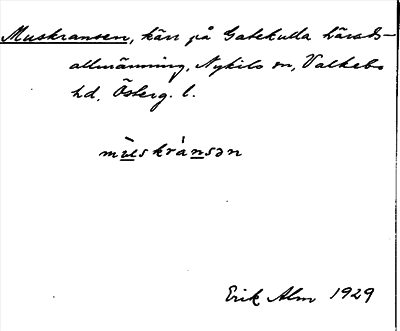 Muskransen, kärr på Gatekulla härads-
allmänning, Nykils sn, Valkebo
hd, Österg. l.
mùskránsən
Erik Alm 1929